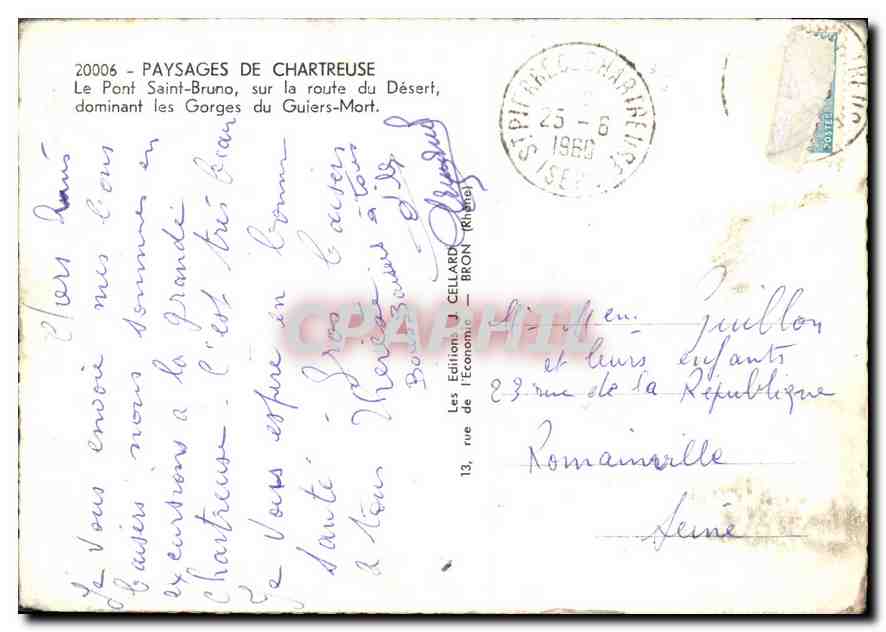 20006 - PAYSAGES DE CHARTREUSE
Le Pont Saint-Bruno, sur la route du Désert,
dominant les Gorges du Guiers-Mort.
ST PIERRE DE CHARTREUSE
25 - 6
1960
(ISERE)
POSTES
Chers amis
Je vous envoie mes bons
baisers nous sommes en
excursions a la grande
Chartreuse. C'est très beau
Je vous espère en bonne
santé. Gros baisers
a tous Thérèse
Bons Baisers à tous
Les Editions J. CELLARD
13, rue de l'Economie — BRON (Rhône)
CPARHIL
M. Mem. Guillon
et leurs enfants
23 rue de la République
Romainville
Seine